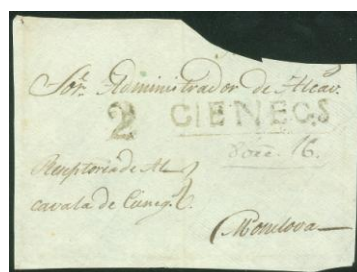 Sor. Administrador de Alcav.
2 CIENEGS
Dore. 16.
Reuptoria de Al
cavala de Cieneg.
Monclova